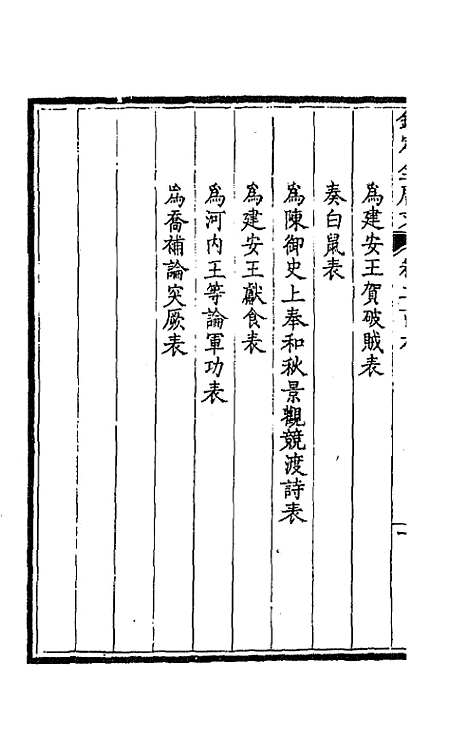 為建安王賀破賊表
奏白鼠表
為陳御史上奉和秋景觀競渡詩表
為建安王獻食表
為河内王等論軍功表
為喬補論突厥表